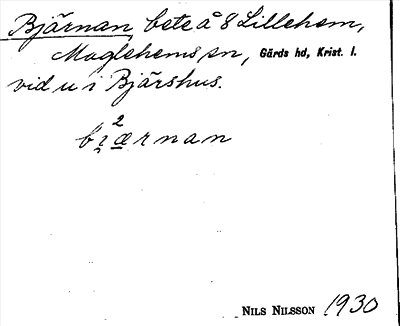 Bjärnan, bete å 8 Lillehem,
Maglehems sn, Gärds hd, Krist. l.
vid u i Bjärshus.
2
bi̯ærnan
NILS NILSSON 1930